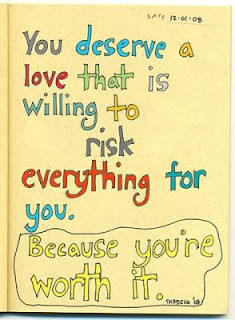 DATE 12-01-08
You deserve a
love that is
willing to
risk
everything for
you.
Because you're
worth it.